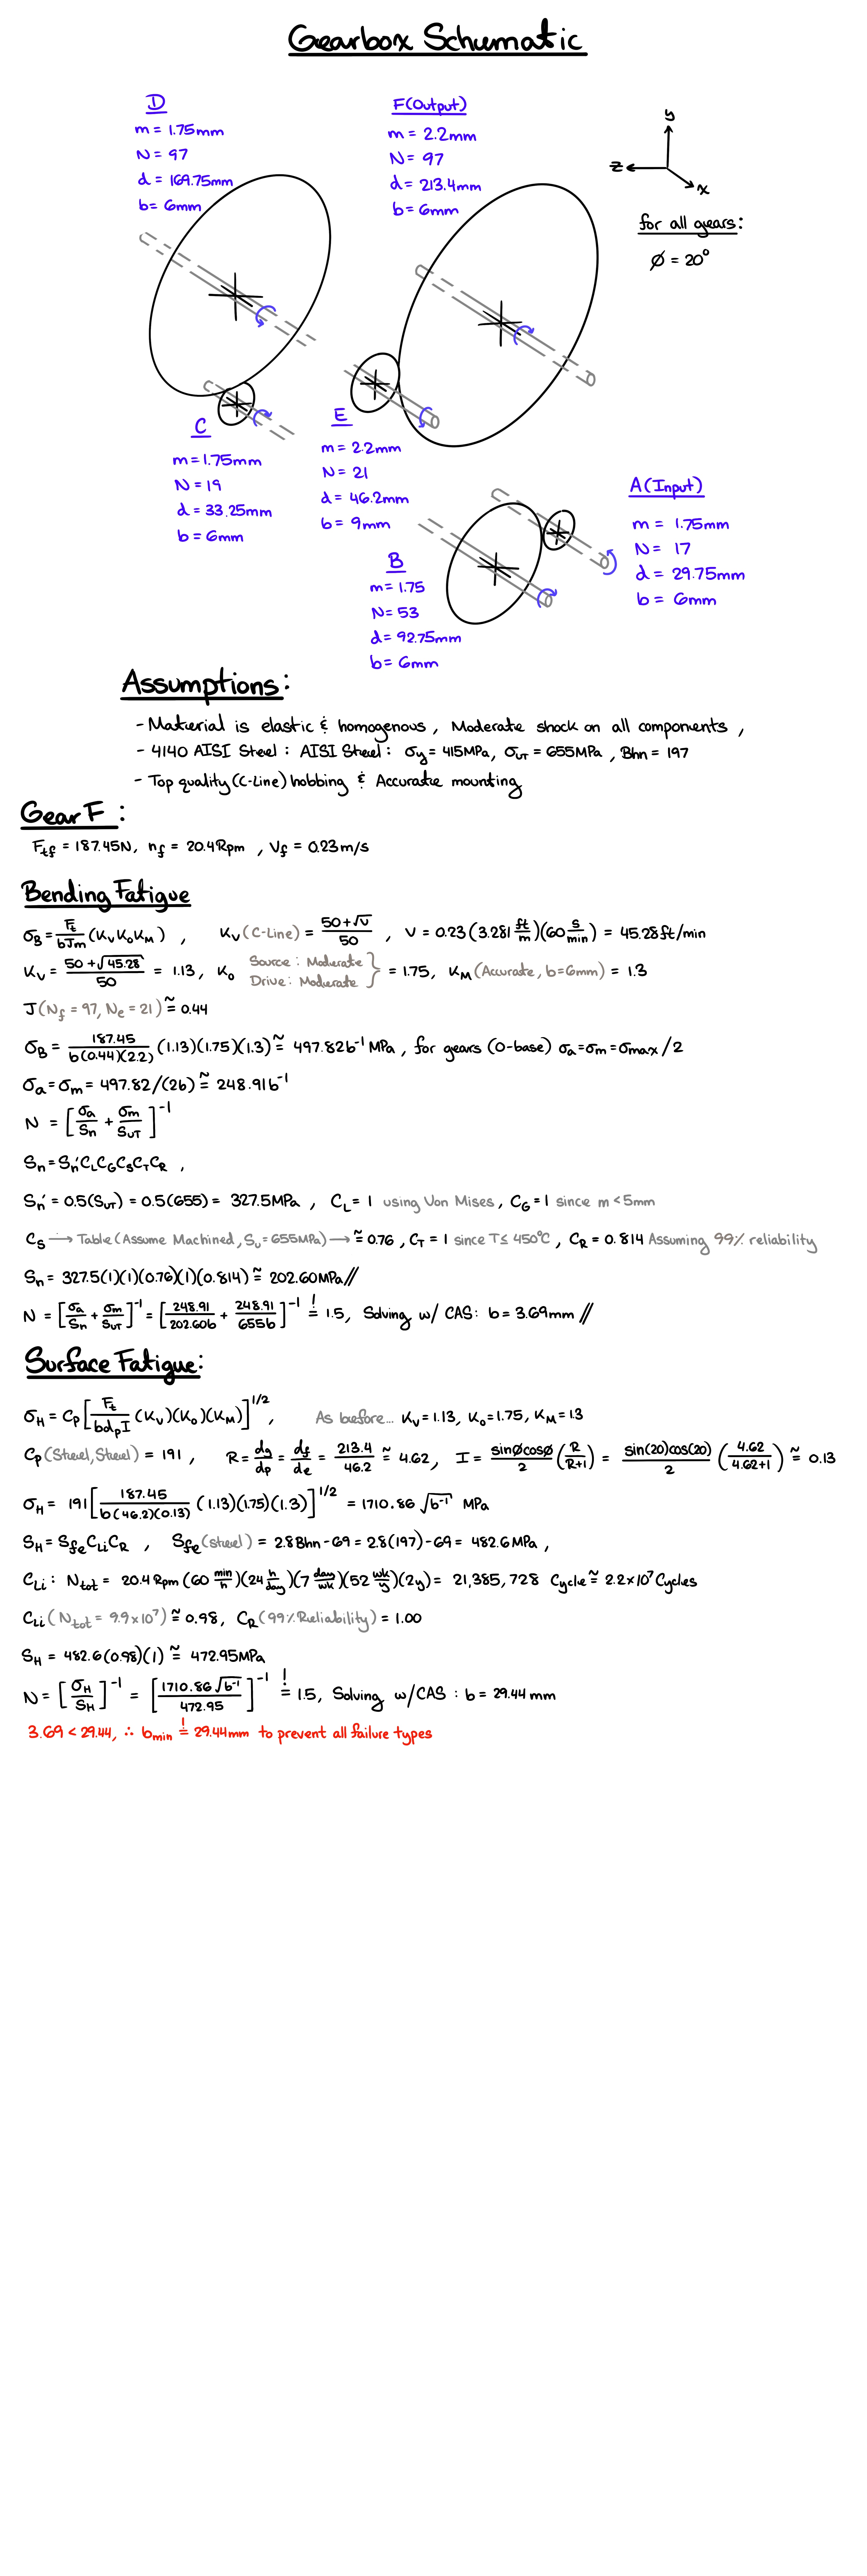 Gearbox Schematic
D
m = 1.75mm
N = 97
d = 169.75mm
b= 6mm
F(Output)
m = 2.2mm
N = 97
d = 213.4mm
b = 6mm
y
z
x
for all gears:
∅ = 20°
C
m = 1.75mm
N = 19
d = 33.25mm
b = 6mm
E
m = 2.2mm
N = 21
d = 46.2mm
b = 9mm
A(Input)
m = 1.75mm
N = 17
d = 29.75mm
b = 6mm
B
m = 1.75
N= 53
d= 92.75mm
b= 6mm
Assumptions:
- Material is elastic & homogenous, Moderate shock on all components,
- 4140 AISI Steel: AISI Steel: σy = 415MPa, σUT = 655MPa, Bhn = 197
- Top quality (C-Line) hobbing & Accurate mounting
Gear F:
Ftf = 187.45N, nf = 20.4Rpm, Vf = 0.23m/s
Bending Fatigue
σB = Ft/bJm (KVKOKM), KV (C-Line) = 50+√V/50, V = 0.23(3.281 ft/m)(60 s/min) = 45.28ft/min
KV = 50+√45.28/50 = 1.13, KO Source: Moderate Drive: Moderate } = 1.75, KM (Accurate, b=6mm) = 1.3
J (Nf = 97, Ne = 21) ≅ 0.44
σB = 187.45/b(0.44)(2.2) (1.13)(1.75)(1.3) ≅ 497.82b⁻¹ MPa, for gears (0-base) σa=σm=σmax/2
σa = σm = 497.82/(2b) ≅ 248.91b⁻¹
N = [σa/Sn + σm/SUT]⁻¹
Sn = Sn'CLCGCSCTCR,
Sn' = 0.5(SUT) = 0.5(655) = 327.5MPa, CL = 1 using Von Mises, CG = 1 since m<5mm
CS → Table (Assume Machined, Su = 655MPa) → ≅ 0.76, CT = 1 since T≤ 450°C, CR = 0.814 Assuming 99% reliability
Sn = 327.5(1)(1)(0.76)(1)(0.814) ≅ 202.60MPa//
N = [σa/Sn + σm/SUT]⁻¹ = [248.91/202.60b + 248.91/655b]⁻¹ =! 1.5, Solving w/ CAS: b = 3.69mm //
Surface Fatigue:
σH = CP[Ft/bdpI (KV)(KO)(KM)]^1/2, As before... KV = 1.13, KO = 1.75, KM = 1.3
CP (Steel, Steel) = 191, R = dg/dp = df/de = 213.4/46.2 ≅ 4.62, I = sin∅cos∅/2 (R/R+1) = sin(20)cos(20)/2 (4.62/4.62+1) ≅ 0.13
σH = 191[187.45/b(46.2)(0.13) (1.13)(1.75)(1.3)]^1/2 = 1710.86 √b⁻¹ MPa
SH = SfeCLiCR, Sfe (steel) = 2.8Bhn-69 = 2.8(197)-69 = 482.6MPa,
CLi: Ntot = 20.4 Rpm (60 min/h)(24 h/day)(7 day/wk)(52 wk/y)(2y) = 21,385,728 Cycle ≅ 2.2x10⁷ Cycles
CLi (Ntot = 9.9x10⁷) ≅ 0.98, CR (99% Reliability) = 1.00
SH = 482.6(0.98)(1) ≅ 472.95MPa
N = [σH/SH]⁻¹ = [1710.86√b⁻¹/472.95]⁻¹ =! 1.5, Solving w/CAS: b = 29.44 mm
3.69 < 29.44, ∴ bmin =! 29.44mm to prevent all failure types